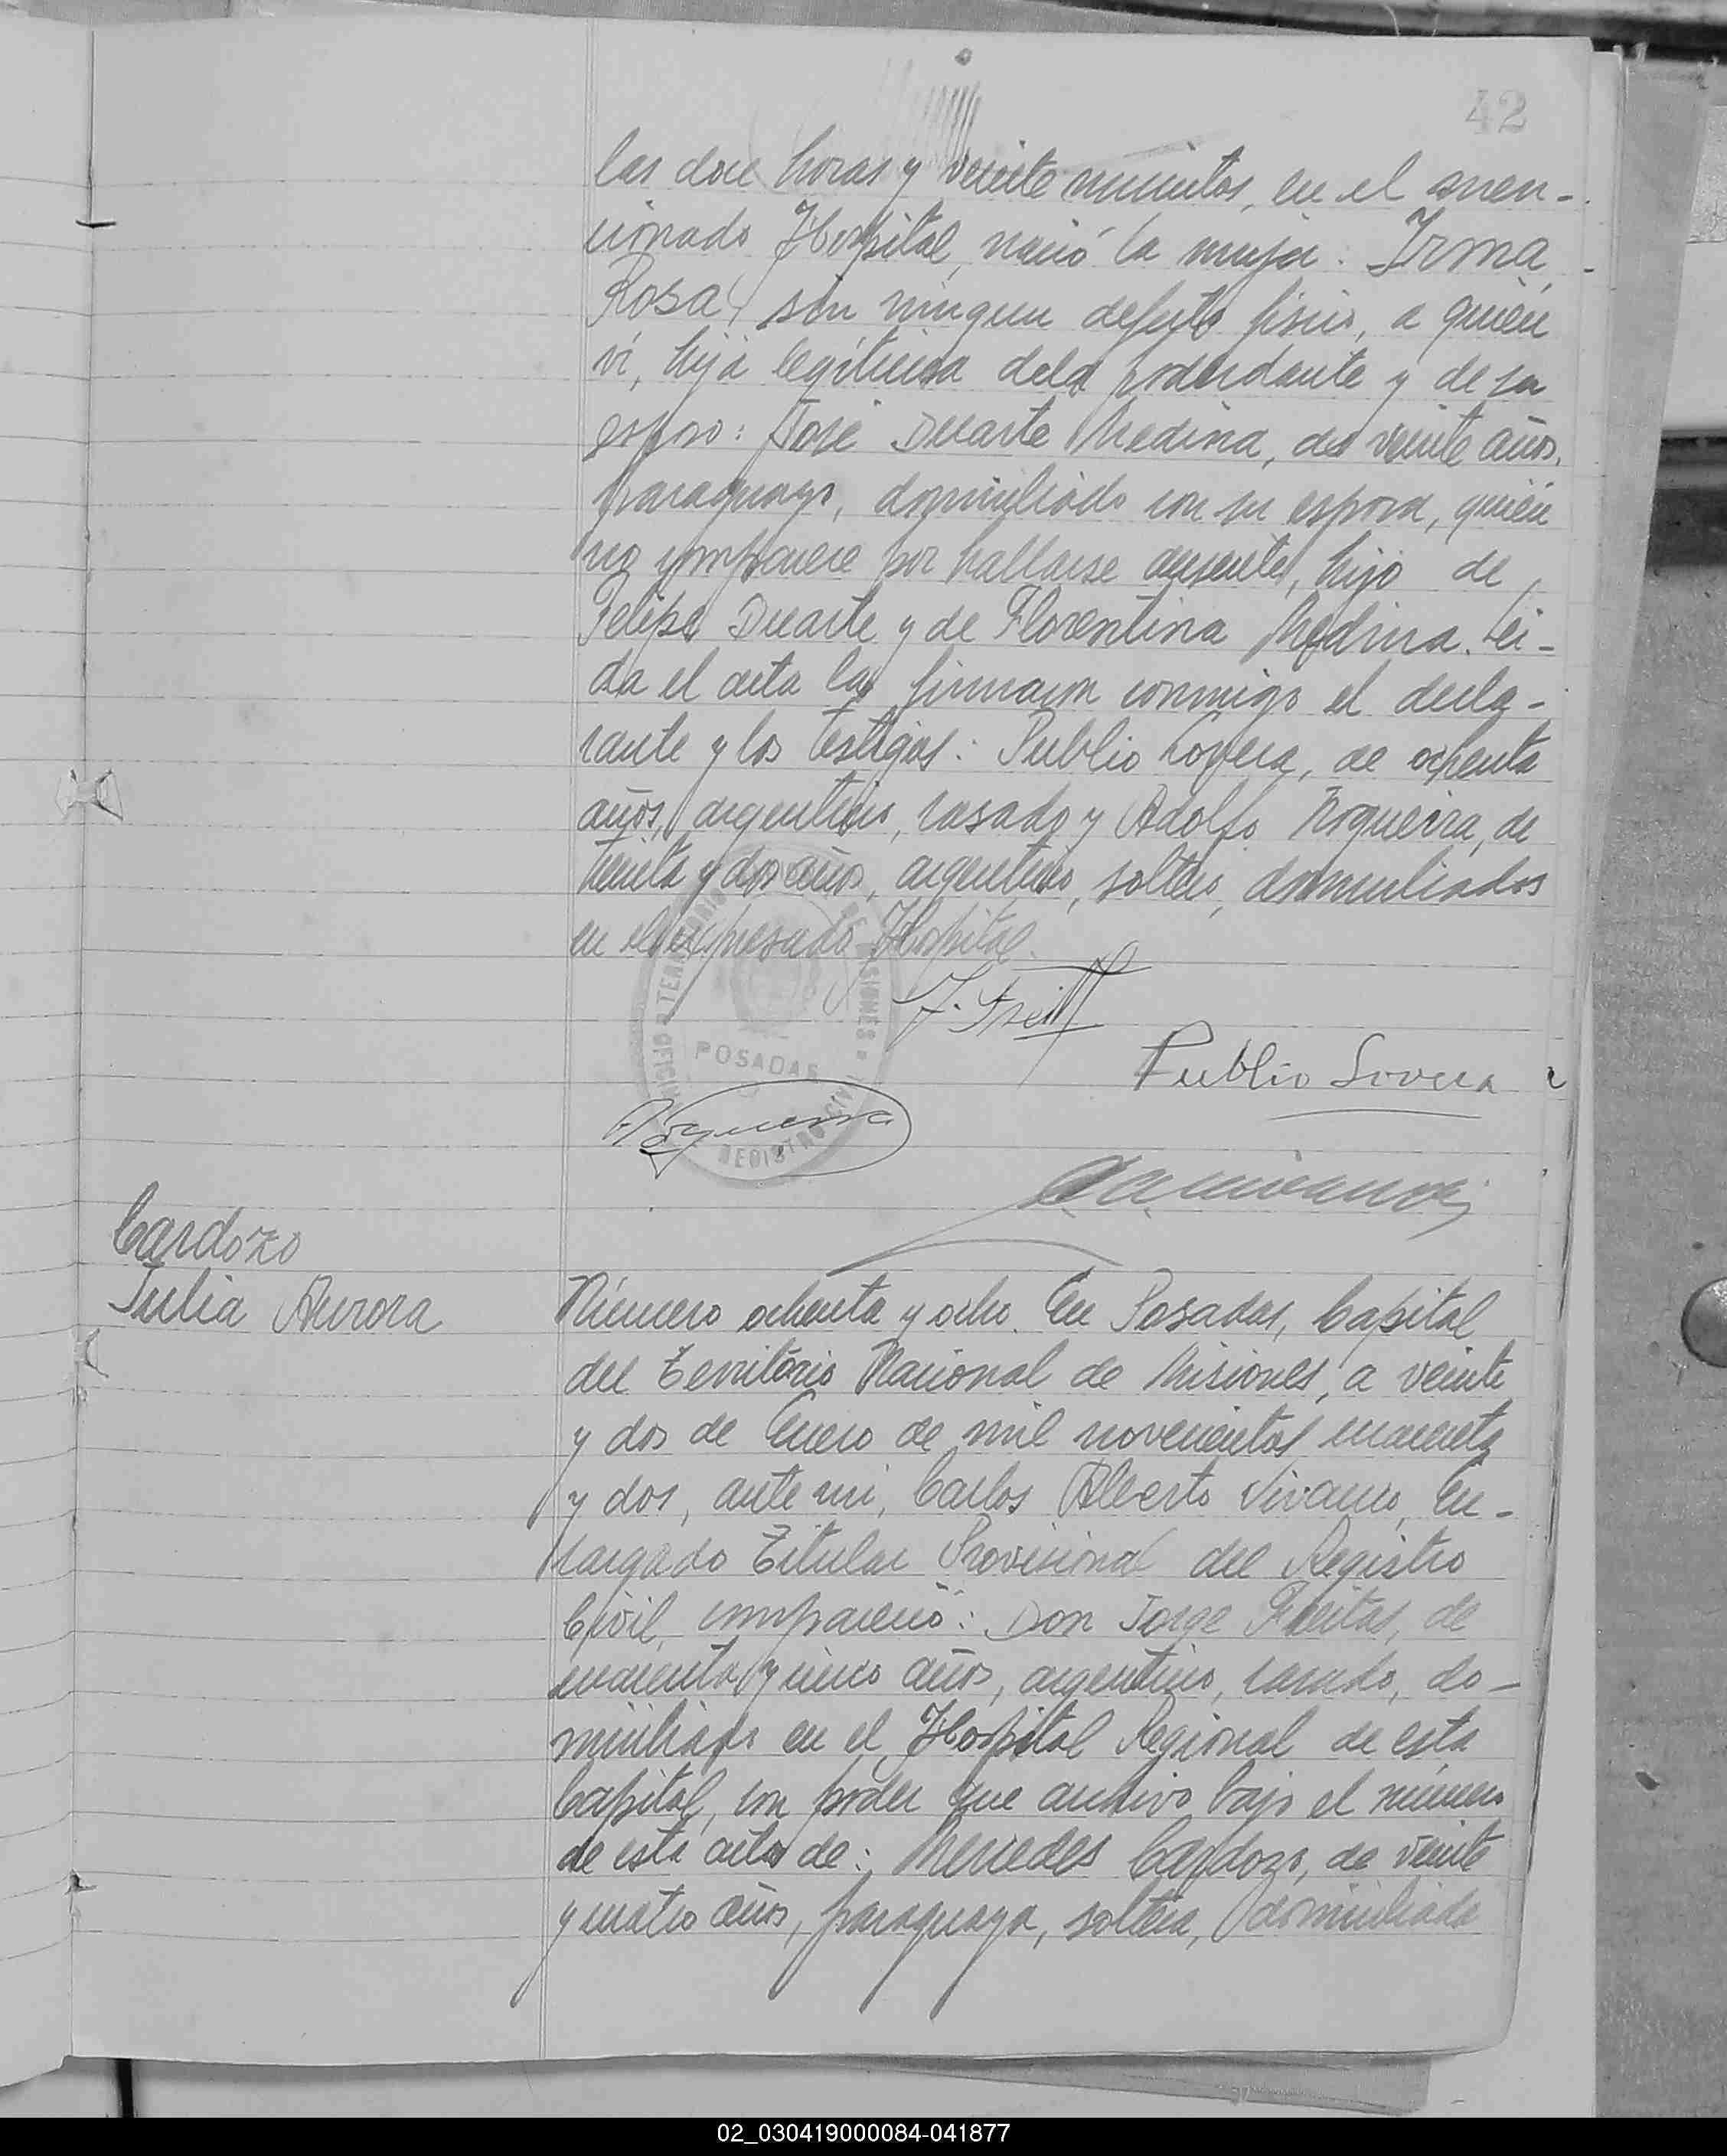 42
las doce horas y veinte minutos, en el men-
cionado Hospital, nació la mujer: Irma
Rosa, sin ningun defecto fisico, a quién
ví, hija legítima de la poderdante y de su
esposo: José Duarte Medina, de veinte años,
paraguayo, domiciliado con su esposa, quién
no comparece por hallarse ausente, hijo de
Felipe Duarte y de Florentina Medina. Leí-
da el acta la firmaron conmigo el decla-
rante y los testigos: Publio Lovera, de ochenta
años, argentino, casado y Adolfo Noguera, de
treinta y dos años, argentino, soltero, domiciliados
en el expresado Hospital.
POSADAS
REGISTRO CIVIL
Publio Lovera
Cardozo
Julia Aurora
Número ochenta y ocho. En Posadas, Capital
del Territorio Nacional de Misiones, a veinte
y dos de Enero de mil novecientos cuarenta
y dos, ante mi, Carlos Alberto Vivanco, En-
cargado Titular Provisional del Registro
Civil, compareció: Don Jorge Freitas, de
cuarenta y cinco años, argentino, casado, do-
miciliado en el Hospital Regional de esta
Capital, con poder que archivo bajo el número
de esta acta de: Mercedes Cardozo, de veinte
y cuatro años, paraguaya, soltera, domiciliada
02_030419000084-041877